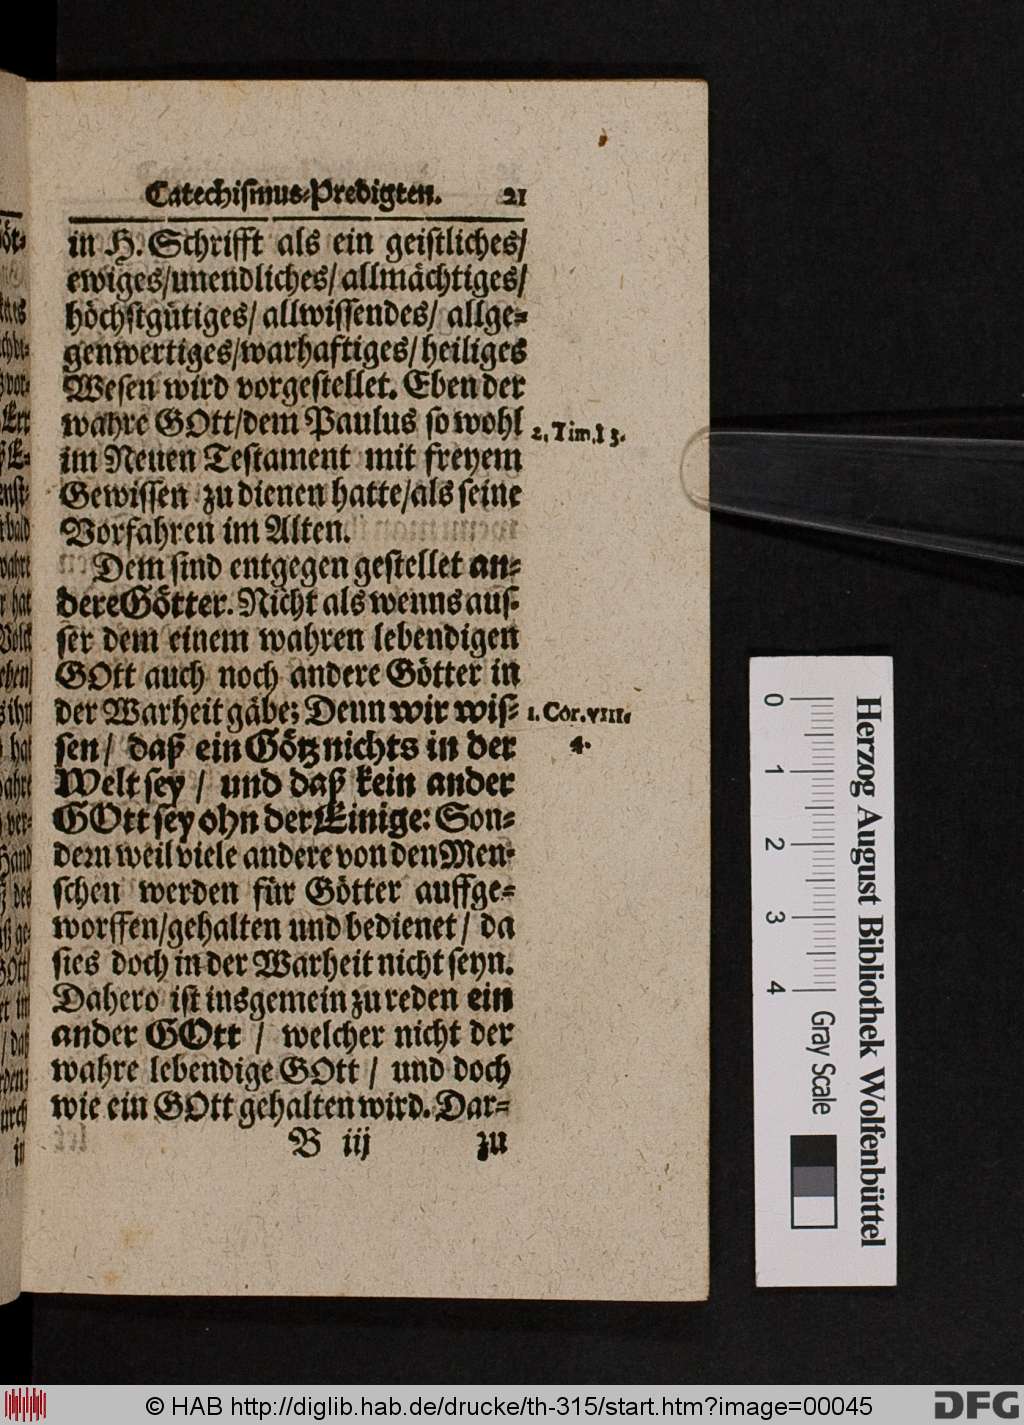 Catechismus-Predigten. 21
in H. Schrifft als ein geistliches/
ewiges/unendliches/allmächtiges/
höchstgütiges/ allwissendes/ allge-
genwertiges/warhaftiges/heiliges
Wesen wird vorgestellet. Eben der
wahre GOtt/dem Paulus so wohl
2. Tim. I 3.
im Neuen Testament mit freyem
Gewissen zu dienen hatte/als seine
Vorfahren im Alten.
Dem sind entgegen gestellet an-
dere Götter. Nicht als wenns aus-
ser dem einem wahren lebendigen
GOtt auch noch andere Götter in
der Warheit gäbe; Denn wir wis-
1. Cor. VIII.
4.
sen/ daß ein Götz nichts in der
Welt sey / und daß kein ander
GOtt sey ohn der Einige: Son-
dern weil viele andere von den Men-
schen werden für Götter auffge-
worffen/gehalten und bedienet/ da
sies doch in der Warheit nicht seyn.
Dahero ist insgemein zu reden ein
ander GOtt / welcher nicht der
wahre lebendige GOtt / und doch
wie ein GOtt gehalten wird. Dar-
B iij zu
0 1 2 3 4
Gray Scale
Herzog August Bibliothek Wolfenbüttel
© HAB http://diglib.hab.de/drucke/th-315/start.htm?image=00045
DFG